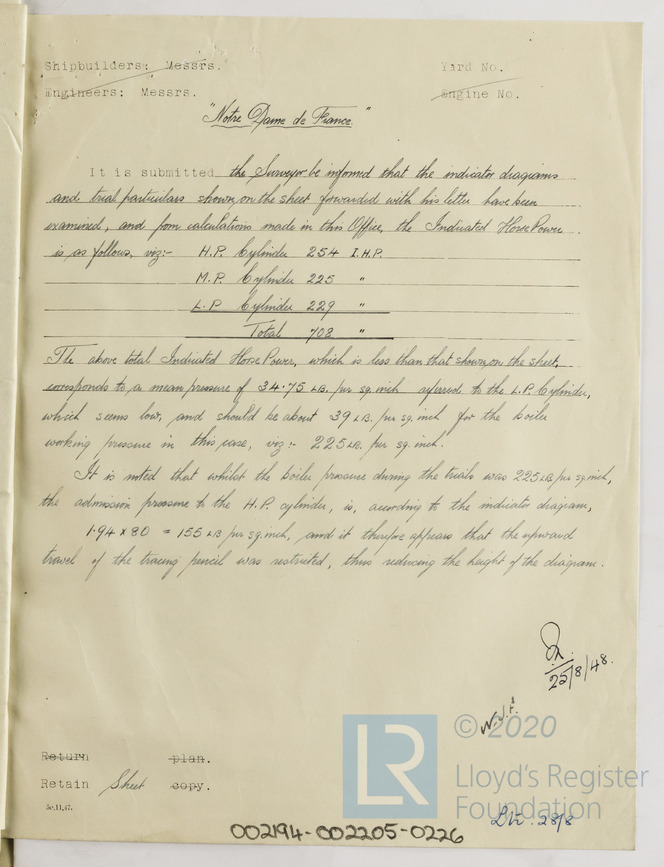 Shipbuilders: Messrs. Yard No.
Engineers: Messrs. Engine No.
"Notre Dame de France"
It is submitted the Surveyor be informed that the indicator diagrams
and trial particulars shown on the sheet forwarded with his letter have been
examined, and from calculations made in this Office, the Indicated Horse Power
is as follows, viz:- H.P. Cylinder 254 I.H.P.
M.P. Cylinder 225 "
L.P. Cylinder 229 "
Total 708 "
The above total Indicated Horse Power, which is less than that shown on the sheet,
corresponds to a mean pressure of 34.75 LB. per sq. inch referred to the L.P. Cylinder,
which seems low, and should be about 39 LB. per sq. inch for the boiler
working pressure in this case, viz:- 225 LB. per sq. inch.
It is noted that whilst the boiler pressure during the trials was 225 LB. per sq. inch,
the admission pressure to the H.P. cylinder, is, according to the indicator diagram,
1.94 x 80 = 155 LB per sq. inch, and it therefore appears that the upward
travel of the tracing pencil was restricted, thus reducing the height of the diagram.
25/8/48.
© 2020
LR
Lloyd's Register
Foundation
Return plan.
Retain Sheet copy.
28/8
002194-002205-0226